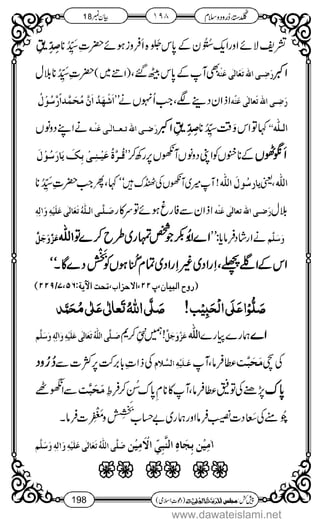 گلدستۂ درود وسلام ١٩٨ بیان نمبر 18
تشریف لائے اور ایک سُتُون کے پاس جلوہ اَفروز ہوئے حضرتِ سَیِّدُنا صِدِّیقِ
اکبر رَضِیَ اللہُ تَعَالٰی عَنْہُ بھی آپ کے پاس بیٹھ گئے، (اتنے میں) حضرتِ سَیِّدُنا بلال
رَضِیَ اللہُ تَعَالٰی عَنْہُ اذان دینے لگے، جب اُنہوں نے ’’اَشْہَدُ اَنَّ مُحَمَّدًا رَّسُوْلُ
اللّٰہ‘‘ کہا تو اس وَقت سَیِّدُنا صِدِّیقِ اکبر رَضِیَ اللہُ تَعَالٰی عَنْہُ نے اپنے دونوں
اَنگوٹھوں کے ناخنوں کو اپنی دونوں آنکھوں پر رکھ کر ’’قُرَّۃُ عَیْنِیْ بِکَ یَا رَسُوْلَ
اللّٰہ یعنی یارسولَ اللہ! آپ میری آنکھوں کی ٹھنڈک ہیں‘‘ کہا، پھر جب حضرتِ سَیِّدُنا
بلال رَضِیَ اللہُ تَعَالٰی عَنْہُ اذان سے فارغ ہوئے تو سرکار صَلَّی اللہُ تَعَالٰی عَلَیْہِ وَاٰلِہٖ
وَسَلَّمَ نے ارشاد فرمایا: ’’اے ابُوبکر! جو شخص تمہاری طرح کرے تو اللہ عَزَّوَجَلَّ
اس کے اگلے پچھلے، اِرادی، غیر اِرادی تمام گُناہوں کو بَخْش دے گا۔‘‘
(روح البیان، پ ٢٢، الاحزاب، تحت الآیۃ: ٥٦، ٢٢٩/٧)
صَلُّوْا عَلَی الْحَبِیْب! صَلَّی اللہُ تَعَالٰی عَلٰی مُحَمَّد
اے ہمارے پیارے اللہ عَزَّوَجَلَّ! ہمیں نبیِ کریم صَلَّی اللہُ تَعَالٰی عَلَیْہِ وَاٰلِہٖ وَسَلَّم
کی سچی مَحَبَّت عطا فرما، آپ عَلَیْہِ السَّلَام کی ذاتِ بابرکت پر کثرت سے دُرُودِ
پاک پڑھنے کی توفیق عطا فرما، آپ کا نامِ پاک سُن کر فرطِ مَحَبَّت سے انگوٹھے
چُومنے کی سَعادَت نصیب فرما اور ہماری بے حساب بَخْشِش ومَغْفِرت فرما۔
اٰمِیْن بِجَاہِ النَّبِیِّ الْاَمِیْن صَلَّی اللہُ تَعَالٰی عَلَیْہِ وَاٰلِہٖ وَسَلَّم
198
www.dawateislami.net